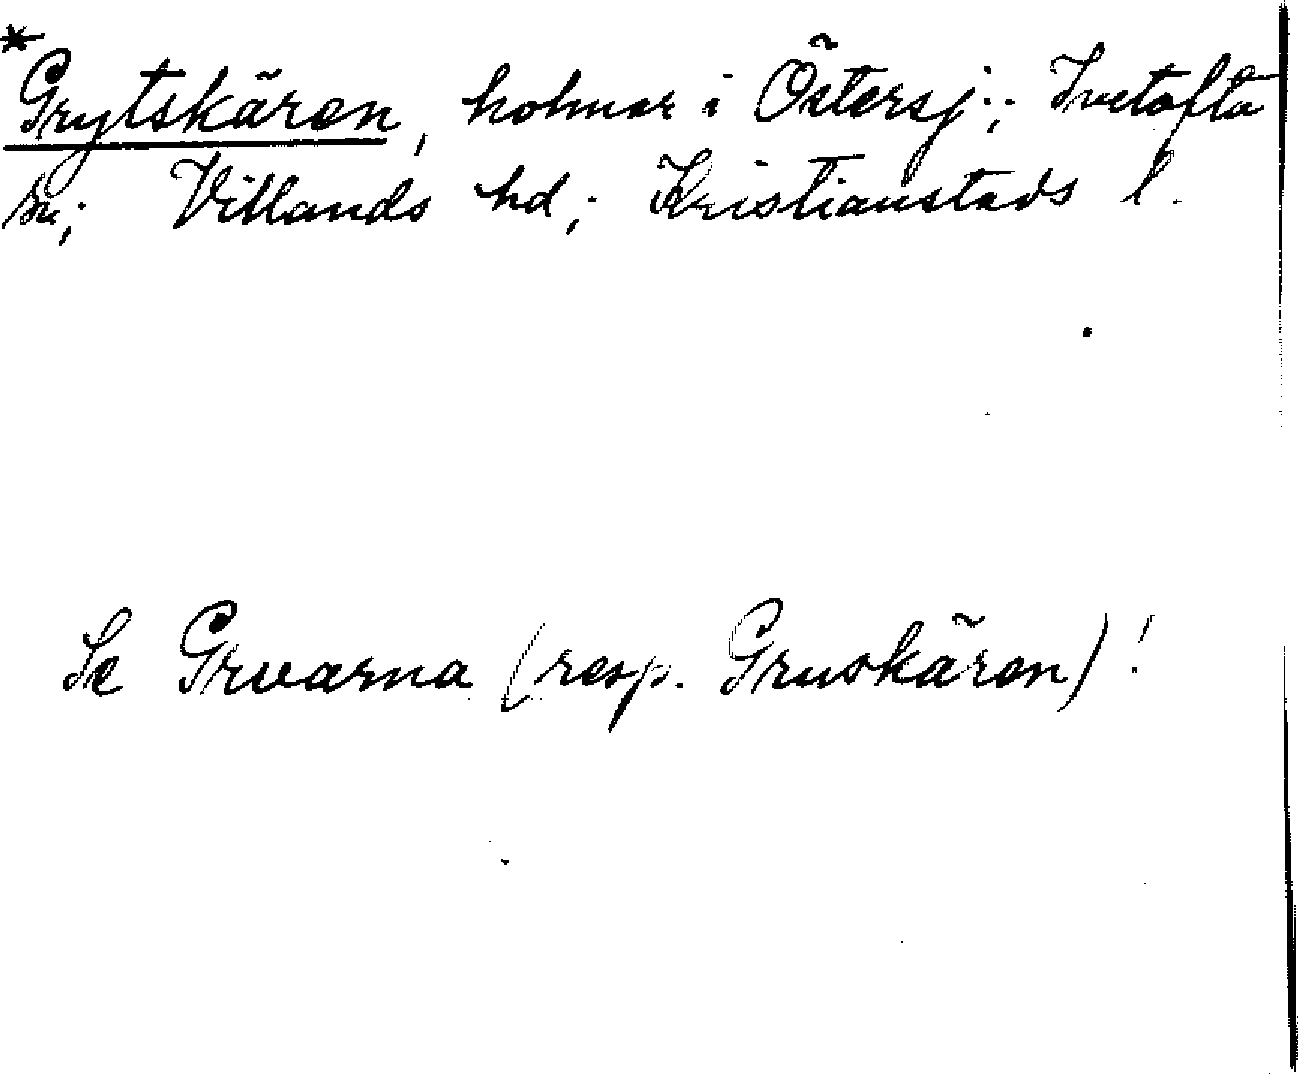 *
Grytskären, holmar i Östersj.; Ivetofta
sn; Villands hd; Kristianstads l.
Se Gruarna (resp. Gruskären)!